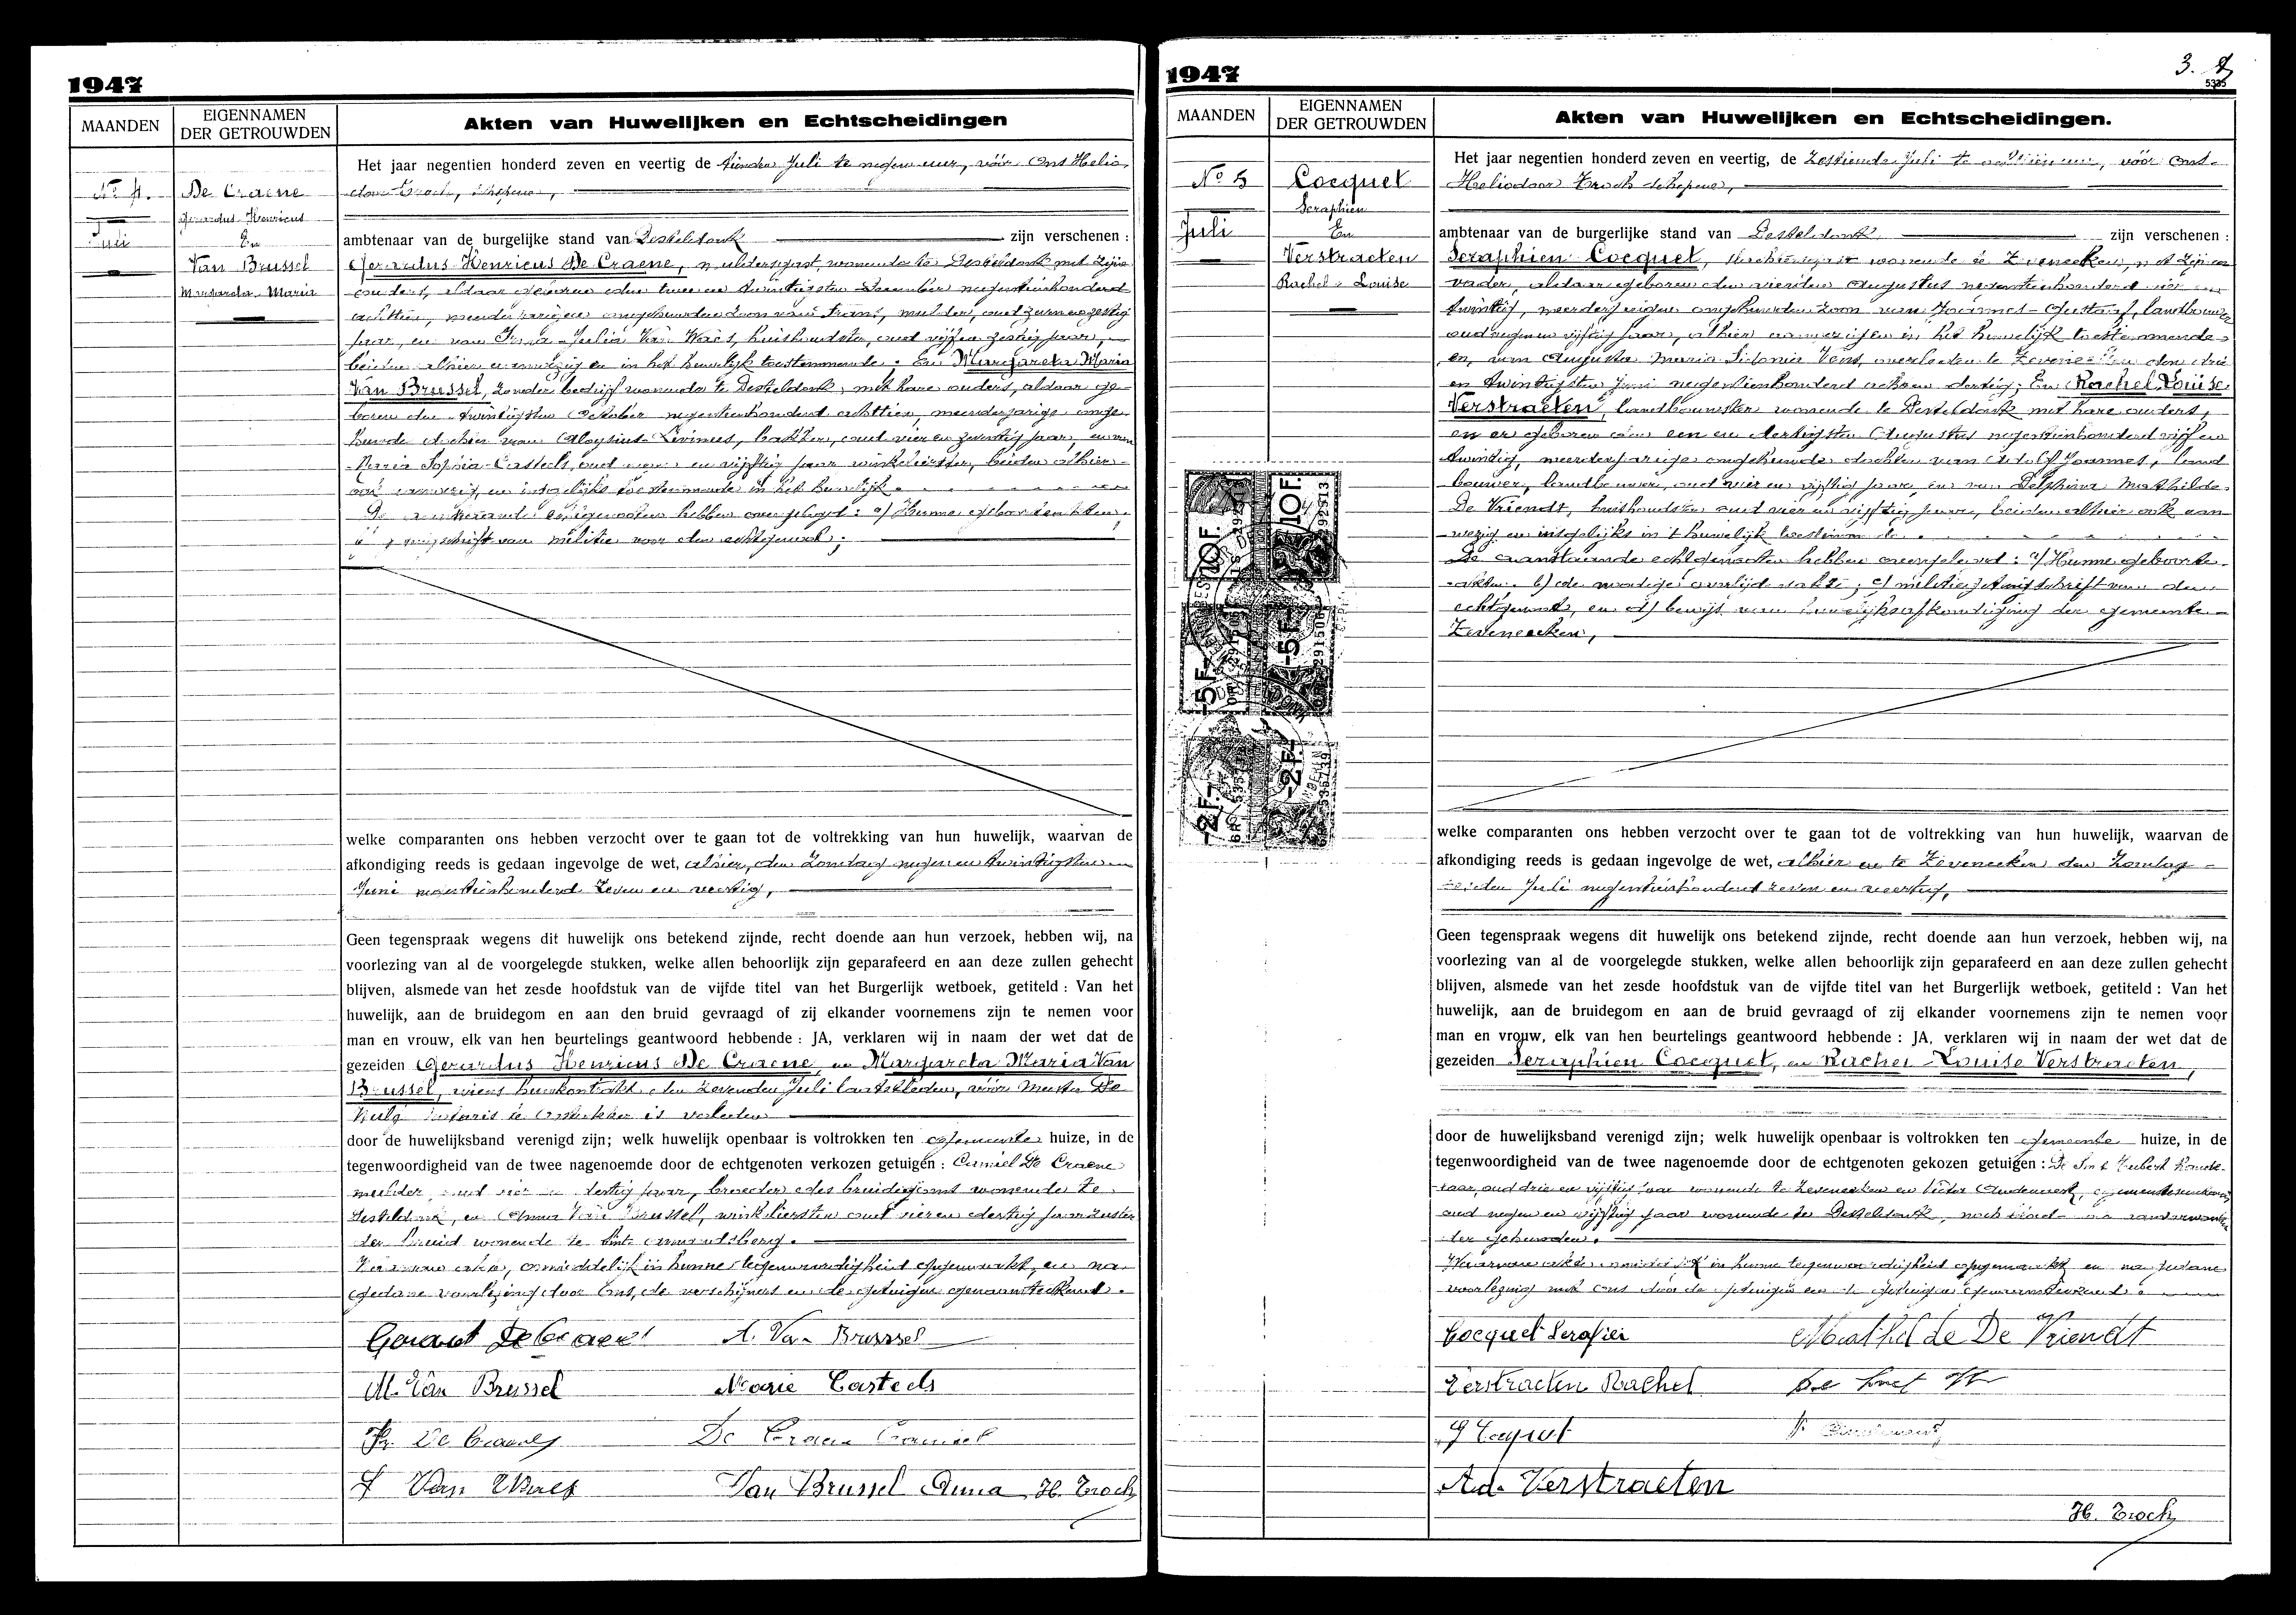 1947
MAANDEN
EIGENNAMEN DER GETROUWDEN
Akten van Huwelijken en Echtscheidingen
No 4.
Juli
De Craene
Gerardus Henricus
En
Van Brussel
Margareta Maria
Het jaar negentien honderd zeven en veertig de tienden Juli te negen uur, vóór Ons Helio-
door Troch, schepene,
ambtenaar van de burgelijke stand van Desteldonk zijn verschenen :
Gerardus Henricus De Craene, muldersgast, wonende te Desteldonk met zijne
ouders, aldaar geboren den twee en twintigsten December negentienhonderd
achttien, meerderjarigen ongehuwden zoon van Frans, mulder, oud zeven en zestig
jaar, en van Irma Julia Van Waes, huishoudster, oud vijf en zestig jaar,
beiden alhier aanwezig en in het huwelijk toestemmende ; En Margareta Maria
Van Brussel, zonder bedrijf wonende te Desteldonk, met hare ouders, aldaar ge-
boren den twintigsten Oktober negentienhonderd achttien, meerderjarige onge-
huwde dochter van Aloysius Livinus, bakker, oud vier en zeventig jaar, en van
Maria Sophia Casteels, oud en vijftig jaar winkelierster, beiden alhier
ook aanwezig, en insgelijks toestemmende in het huwelijk.
De aanstaande echtgenooten hebben overgelegd : a) Hunne geboorteakten,
uittreksel van militie voor den echtgenoot ;
welke comparanten ons hebben verzocht over te gaan tot de voltrekking van hun huwelijk, waarvan de
afkondiging reeds is gedaan ingevolge de wet, alhier, den Zondag negen en twintigsten
Juni negentienhonderd zeven en veertig,
Geen tegenspraak wegens dit huwelijk ons betekend zijnde, recht doende aan hun verzoek, hebben wij, na
voorlezing van al de voorgelegde stukken, welke allen behoorlijk zijn geparafeerd en aan deze zullen gehecht
blijven, alsmede van het zesde hoofdstuk van de vijfde titel van het Burgerlijk wetboek, getiteld : Van het
huwelijk, aan de bruidegom en aan den bruid gevraagd of zij elkander voornemens zijn te nemen voor
man en vrouw, elk van hen beurtelings geantwoord hebbende : JA, verklaren wij in naam der wet dat de
gezeiden Gerardus Henricus De Craene, en Margareta Maria Van
Brussel, wiens huwkontrakt den zevenden Juli laatstleden, vóór Meester De
notaris te Oostakker is verleden
door de huwelijksband verenigd zijn; welk huwelijk openbaar is voltrokken ten gemeente huize, in de
tegenwoordigheid van de twee nagenoemde door de echtgenoten verkozen getuigen : Camiel De Craene
mulder, oud vier en dertig jaar, broeder des bruidegoms wonende te
Desteldonk, en Anna Van Brussel, winkelierster oud vier en dertig jaar zuster
der bruid wonende te Sint Amandsberg.
Waarvan akte, onmiddelijk in hunne tegenwoordigheid opgemaakt, en na
gedane voorlezing door Ons, de verschijners en de getuigen genaamteekend.
Gerard De Craene A. Van Brussel
M. Van Brussel Marie Casteels
Fr. De Craene De Craene Camiel
J Van Waes Van Brussel Anna H. Troch
1947
3.
5335
MAANDEN
EIGENNAMEN DER GETROUWDEN
Akten van Huwelijken en Echtscheidingen.
No 5
Juli
Cocquet
Seraphien
En
Verstraeten
Rachel - Louise
10F.
10F.
292513
5F
5F
2F
2F
Het jaar negentien honderd zeven en veertig, de zestiende Juli te uur, vóór Ons
Heliodoor Troch schepene,
ambtenaar van de burgerlijke stand van Desteldonk zijn verschenen :
Seraphien Cocquet, wonende te Zeveneeken, met zijnen
vader, aldaar geboren den vierden Augustus negentienhonderd en
twintig, meerderjarigen ongehuwden zoon van Joannes - Gustaaf, landbouwer
oud negen en vijftig jaar, alhier aanwezig en in het huwelijk toestemmende
en, van Augusta Maria Sidonia Vens, overleden te Zeveneeken den drie
en twintigsten Juni negentienhonderd acht en dertig; En Rachel Louise
Verstraeten, landbouwster wonende te Desteldonk met hare ouders,
en er geboren den een en dertigsten Augustus negentienhonderd vijf en
twintig, meerderjarige ongehuwde dochter van Adolf Joannes, land
bouwer, landbouwer, oud vier en vijftig jaar, en van Delphina Mathilde
De Vriendt, huishoudster oud vier en vijftig jaar, beiden alhier ook aan-
wezig en insgelijks in 't huwelijk toestemmende.
De aanstaande echtgenooten hebben overgelegd : a) Hunne geboorte-
akten. b) de noodige overlijdensakte ; c) militiegetuigschrift van den
echtgenoot, en d) bewijs van huwelijksafkondiging der gemeente
Zeveneeken,
welke comparanten ons hebben verzocht over te gaan tot de voltrekking van hun huwelijk, waarvan de
afkondiging reeds is gedaan ingevolge de wet, alhier en te Zeveneeken den Zondag
Juli negentienhonderd zeven en veertig,
Geen tegenspraak wegens dit huwelijk ons betekend zijnde, recht doende aan hun verzoek, hebben wij, na
voorlezing van al de voorgelegde stukken, welke allen behoorlijk zijn geparafeerd en aan deze zullen gehecht
blijven, alsmede van het zesde hoofdstuk van de vijfde titel van het Burgerlijk wetboek, getiteld : Van het
huwelijk, aan de bruidegom en aan de bruid gevraagd of zij elkander voornemens zijn te nemen voor
man en vrouw, elk van hen beurtelings geantwoord hebbende : JA, verklaren wij in naam der wet dat de
gezeiden Seraphien Cocquet, en Rachel - Louise Verstraeten,
door de huwelijksband verenigd zijn; welk huwelijk openbaar is voltrokken ten gemeente huize, in de
tegenwoordigheid van de twee nagenoemde door de echtgenoten gekozen getuigen : De Smet Hubert
oud drie en vijftig jaar wonende te Zeveneeken en Victor Audenaert,
oud negen en vijftig jaar wonende te Desteldonk, noch
der gehuwden.
Waarvan akte onmiddelijk in hunne tegenwoordigheid opgemaakt en na gedane
voorlezing met Ons door de getuigen genaamteekend.
Cocquet Serafien Mathilde De Vriendt
Verstraeten Rachel De Smet
G Cocquet
Ad. Verstraeten
H. Troch